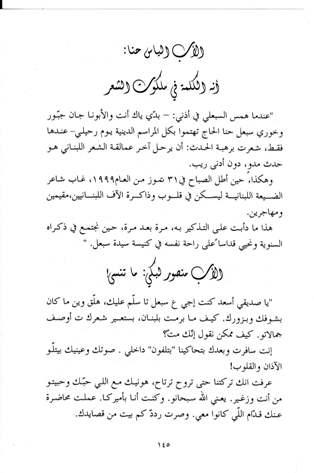 الأب الياس حنا:
إنه الكلمة في ملكوت الشعر
"عندما همس السبعلي في أذني: – بدّي ياك أنت والأبونا جان جبّور
وخوري سبعل حنا الحاج تهتموا بكل المراسم الدينية يوم رحيلي– عندها
فقط، شعرت برهبة الحدث: أن يرحل آخر عمالقة الشعر اللبناني هو
حدث مدوٍ، دون أدنى ريب.
وهكذا، حين أطل الصباح في ٣١ تموز من العام١٩٩٩، غاب شاعر
الضيعة اللبنانية ليسكن في قلوب وذاكرة آلاف اللبنانيين،مقيمين
ومهاجرين.
هذا ما دأبت على التذكير به، مرة بعد مرة، حين نجتمع في ذكراه
السنوية ونحيي قداساً على راحة نفسه في كنيسة سيدة سبعل. "
الأب منصور لبكي: ما تنسى!
"يا صديقي أسعد كنت إجي ع سبعل تا سلّم عليك، هلّق وين ما كان
بشوفك وبزورك. كيف ما برمت بلبنان، بستعير شعرك ت أوصف
جمالاتو. كيف ممكن نقول إنّك مت؟
إنت سافرت وبعدك بتحاكينا "بتلفون" داخلي . صوتك وعينيك بيتلّو
الآذان والقلوب!
عرفت انك تركتنا حتى تروح ترتاح، هونيك مع اللي حبّك وحبيتو
من أنت وزغير. يعني الله سبحانو. وكنت أنا بأميركا. عملت محاضرة
عنك قدّام اللّي كانوا معي. وصرت ردّد كم بيت من قصايدك.
١٤٥